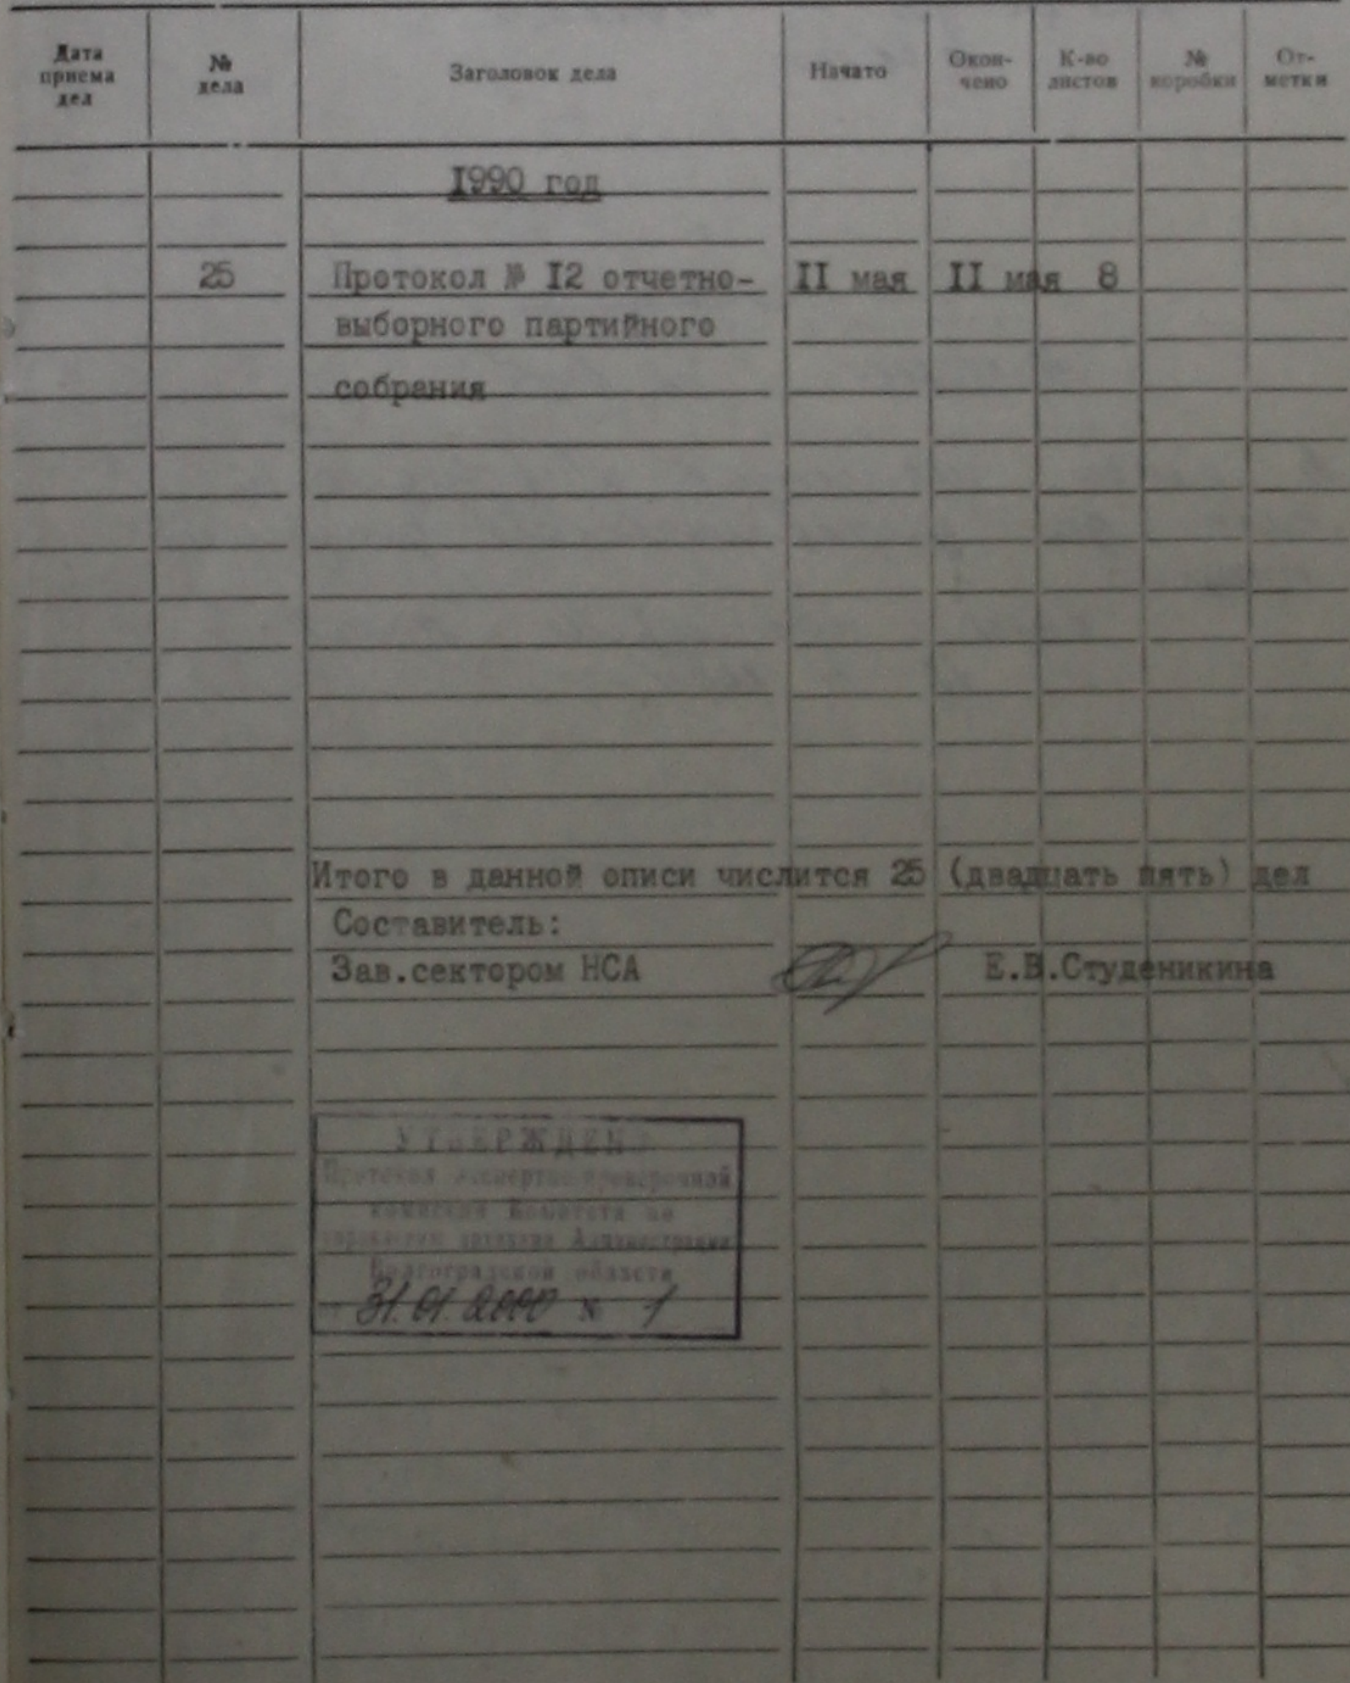 Дата приема дел № дела Заголовок дела Начато Окон- чено К-во листов № коробки От- метки
1990 год
25 Протокол № 12 отчетно- 11 мая 11 мая 8
выборного партийного
собрания
Итого в данной описи числится 25 (двадцать пять) дел
Составитель:
Зав.сектором НСА Е.В.Студеникина
УТВЕРЖДЕНО
Протокол экспертно-проверочной
комиссии Комитета по
управлению архивами Администрации
Волгоградской области
31.01.2000 № 1